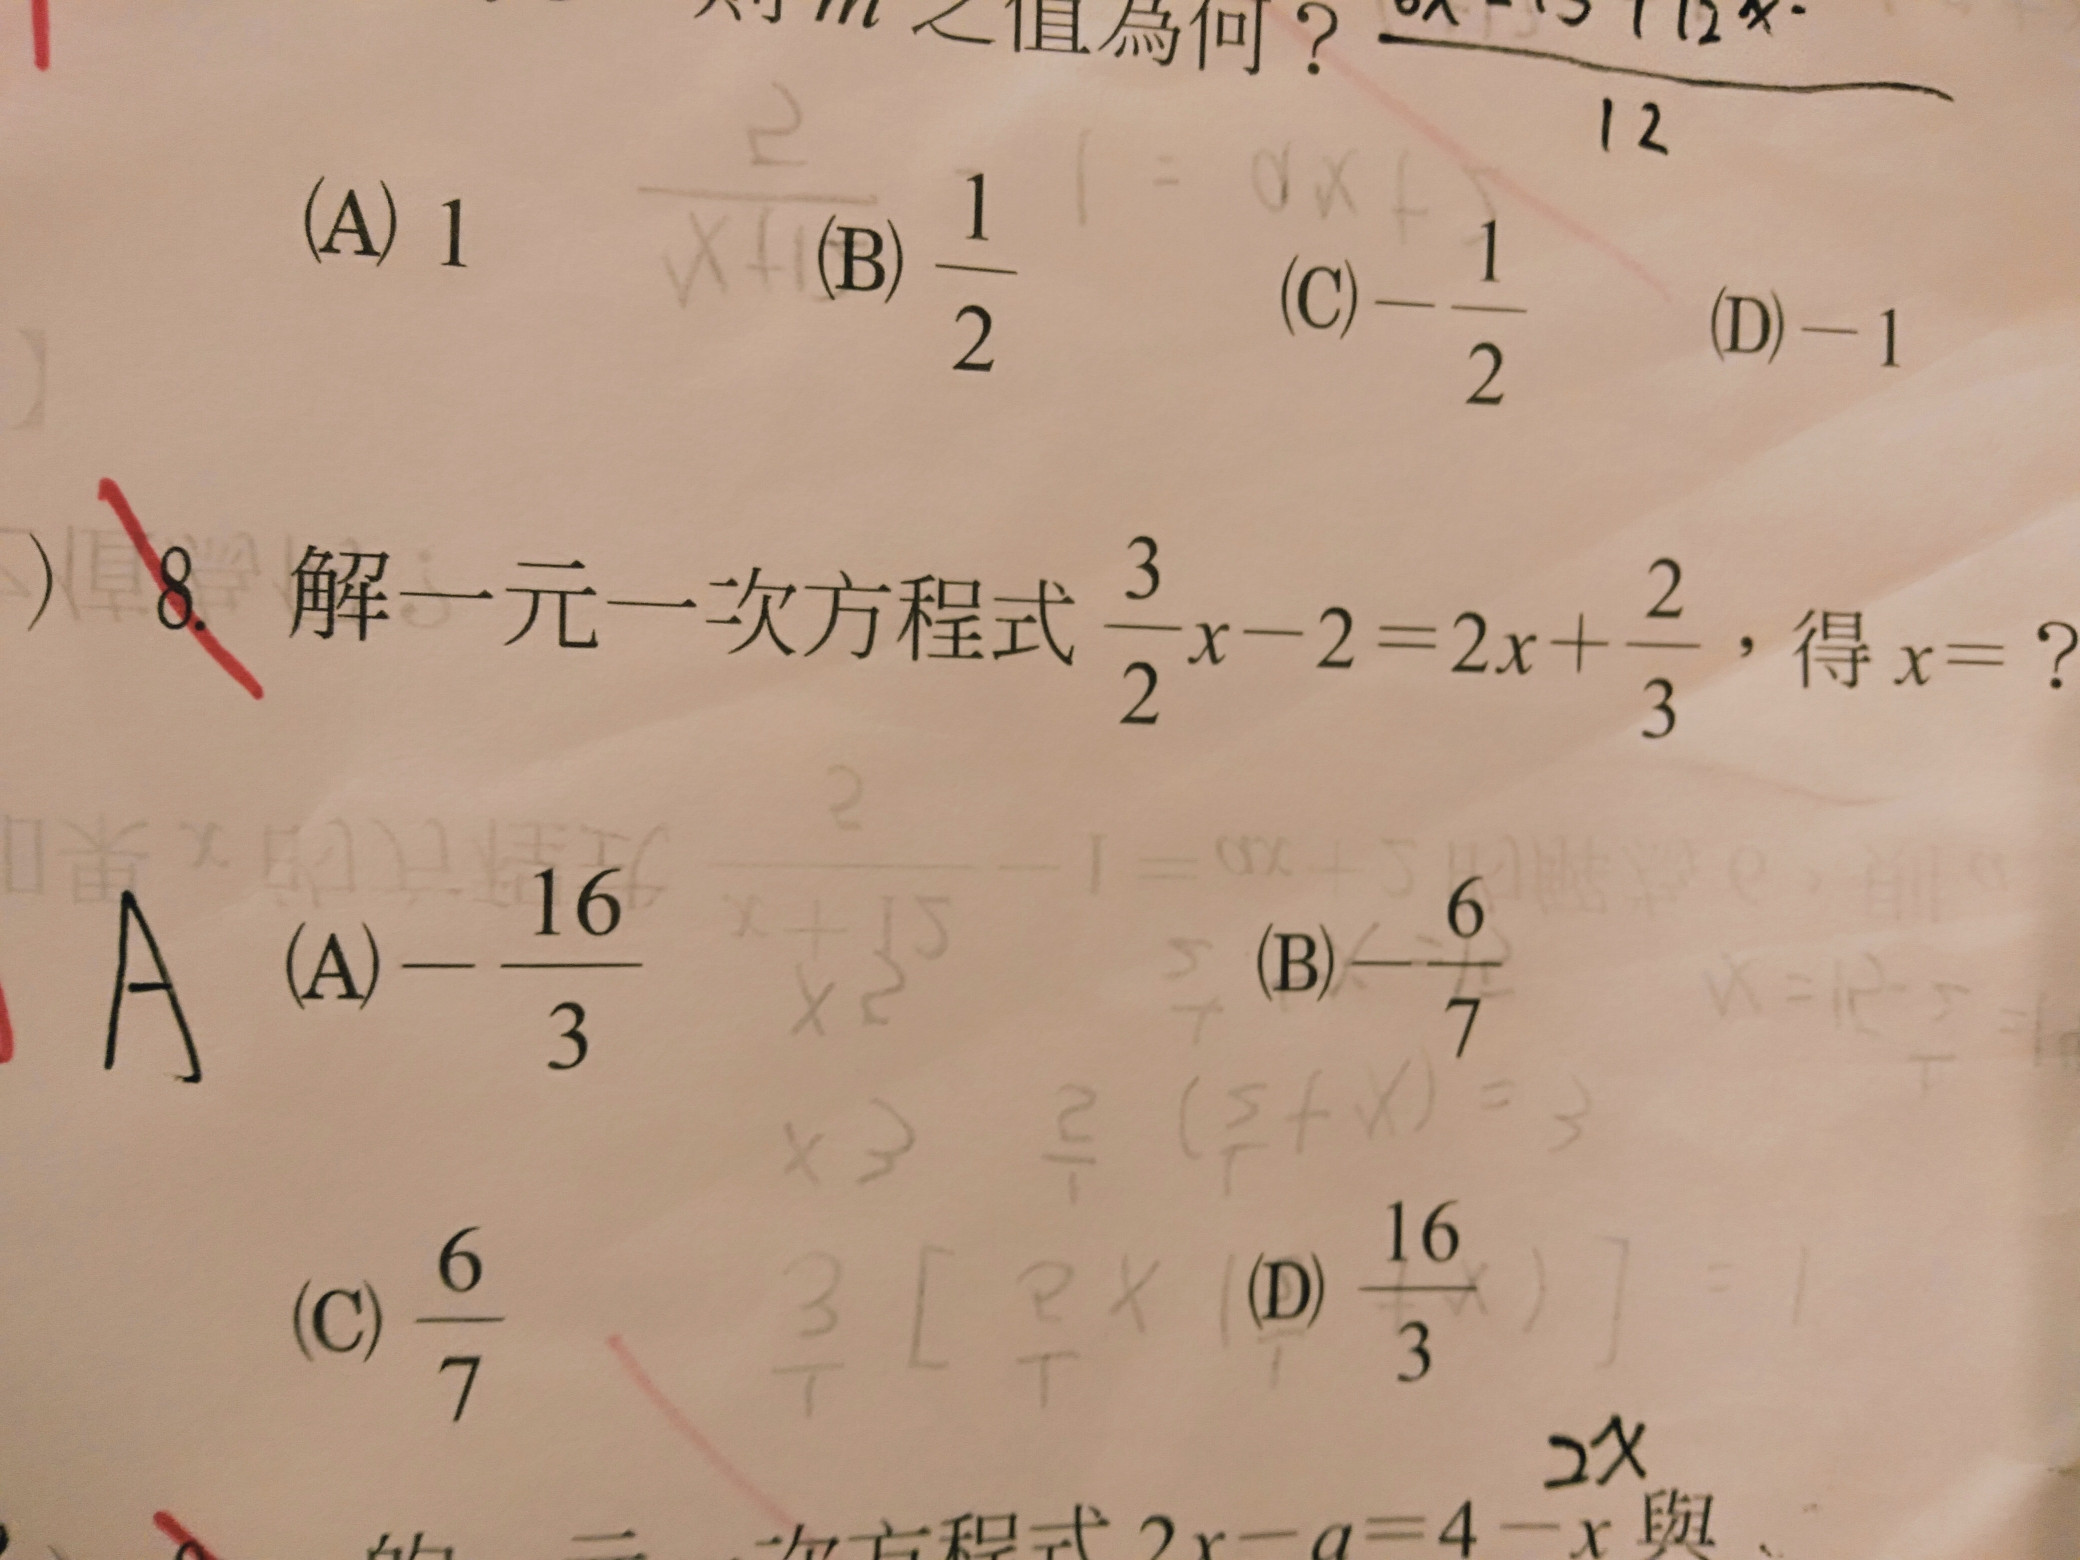 則 m 之值為何？
12
(A) 1 (B) 1/2 (C) −1/2 (D) −1
) 8. 解一元一次方程式 3/2 x−2=2x+2/3，得 x=？
A (A) −16/3 (B) −6/7
(C) 6/7 (D) 16/3
2x
一次方程式 2x−a=4−x 與